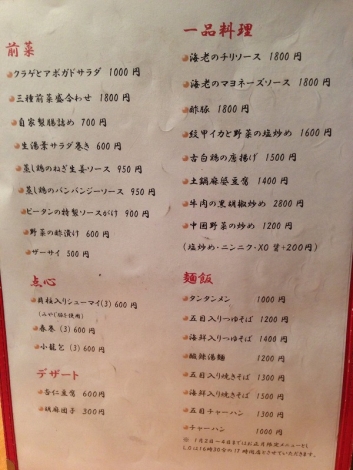 前菜
クラゲとアボガドサラダ 1000円
三種前菜盛合わせ 1800円
自家製腸詰め 700円
生湯葉サラダ巻き 600円
蒸し鶏のねぎ生姜ソース 950円
蒸し鶏のバンバンジーソース 950円
ピータンの特製ソースがけ 900円
野菜の酢漬け 600円
ザーサイ 500円
点心
貝柱入りシューマイ(3) 600円
春巻 (3) 600円
小籠包 (3) 600円
デザート
杏仁豆腐 600円
胡麻団子 300円
一品料理
海老のチリソース 1800円
海老のマヨネーズソース 1800円
酢豚 1800円
紋甲イカと野菜の塩炒め 1600円
古白鶏の唐揚げ 1500円
土鍋麻婆豆腐 1400円
牛肉の黒胡椒炒め 2800円
中国野菜の炒め 1200円
(塩炒め・ニンニク・XO醤+200円)
麺飯
タンタンメン 1000円
五目入りつゆそば 1200円
海鮮入りつゆそば 1400円
酸辣湯麺 1200円
五目入り焼きそば 1300円
海鮮入り焼きそば 1500円
五目チャーハン 1300円
チャーハン 1000円
※ 1月2日~4日まではお正月限定メニューとし
L.Eは16時30分の17時閉店とさせていただきます。